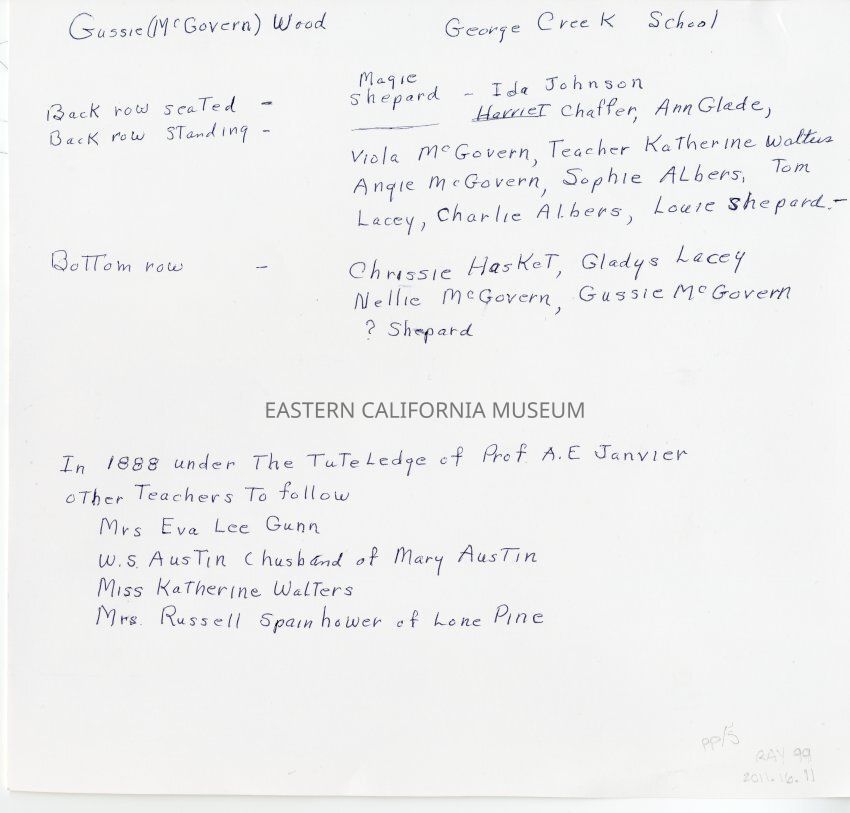 Gussie (McGovern) Wood George Creek School
Magie
Back row seated - Shepard - Ida Johnson
Back row standing - Harriet Chaffer, Ann Glade,
Viola McGovern, Teacher Katherine Walters
Angie McGovern, Sophie Albers, Tom
Lacey, Charlie Albers, Louie Shepard.-
Bottom row - Chrissie Hasket, Gladys Lacey
Nellie McGovern, Gussie McGovern
? Shepard
EASTERN CALIFORNIA MUSEUM
In 1888 under The TuTeLedge of Prof A.E Janvier
OTher Teachers To follow
Mrs Eva Lee Gunn
W.S. AusTin (husband of Mary AusTin
Miss KaTherine WalTers
Mrs. Russell Spainhower of Lone Pine
PP/5
RAY 99
2011.16.11